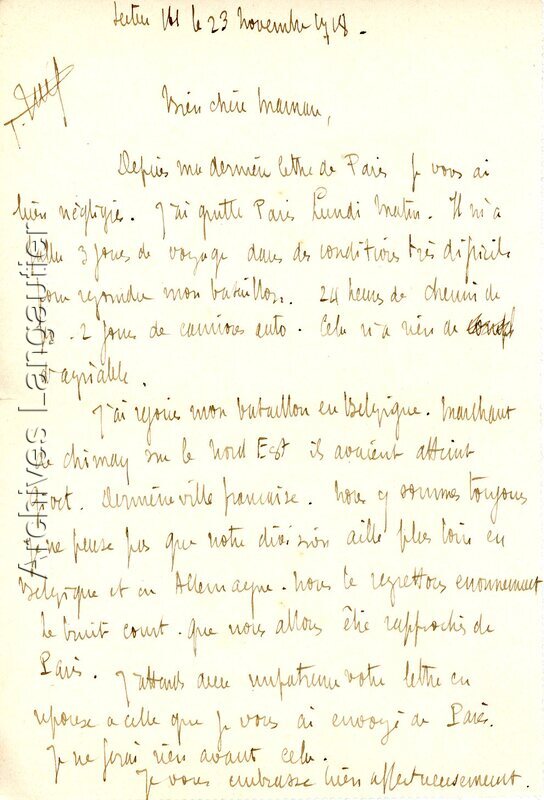 Secteur 161 le 23 Novembre 1918.
Bien chère Maman,
Depuis ma dernière lettre de Paris je vous ai
bien négligée. J'ai quitté Paris Lundi Matin. Il m'a
fallu 3 jours de voyage dans des conditions très difficiles
pour rejoindre mon bataillon. 24 heures de chemin de
fer. 2 jours de camions auto. Cela n'a rien de
d'agréable.
J'ai rejoins mon bataillon en Belgique. Marchant
de Chimay sur le Nord Est ils avaient atteint
. Dernière ville française. Nous y sommes toujours
ne pense pas que notre division aille plus loin en
Belgique et en Allemagne. Nous le regrettons énormément
Le bruit court que nous allons être rapprochés de
Paris. J'attends avec impatience votre lettre en
réponse à celle que je vous ai envoyé de Paris.
Je ne ferai rien avant cela.
Je vous embrasse bien affectueusement.
Archives Langautier